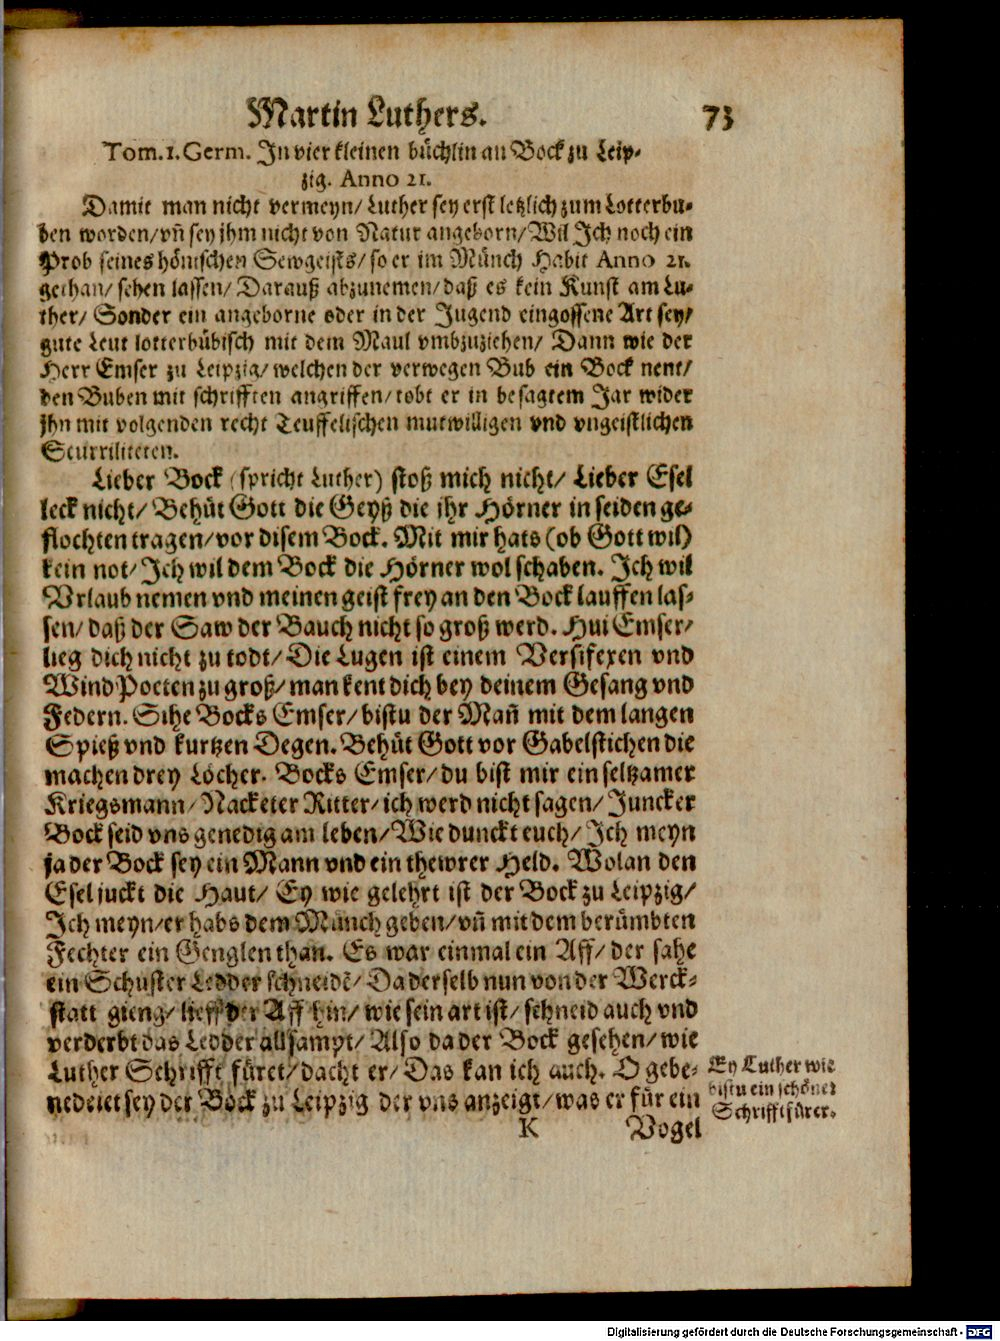 Martin Luthers. 73
Tom. 1. Germ. In vier kleinen büchlin an Bock zu Leip-
zig. Anno 21.
Damit man nicht vermeyn/ Luther sey erst letzlich zum Lotterbu-
ben worden/ vñ sey jhm nicht von Natur angeborn/ Wil Ich noch ein
Prob seines hönischen Sewgeists/ so er im Münch Habit Anno 21.
gethan/ sehen lassen/ Darauß abzunemen/ daß es kein Kunst am Lu-
ther/ Sonder ein angeborne oder in der Jugend eingossene Art sey/
gute Leut lotterbübisch mit dem Maul vmbzuziehen/ Dann wie der
Herr Emser zu Leipzig/ welchen der verwegen Bub ein Bock nent/
den Buben mit schrifften angriffen/ tobt er in besagtem Jar wider
jhn mit volgenden recht Teuffelischen mutwilligen vnd vngeistlichen
Scurriliteten.
Lieber Bock (spricht Luther) stoß mich nicht/ Lieber Esel
leck nicht/ Behüt Gott die Geyß die jhr Hörner in seiden ge-
flochten tragen/ vor disem Bock. Mit mir hats (ob Gott wil)
kein not/ Ich wil dem Bock die Hörner wol schaben. Ich wil
Vrlaub nemen vnd meinen geist frey an den Bock lauffen las-
sen/ daß der Saw der Bauch nicht so groß werd. Hui Emser/
lieg dich nicht zu todt/ Die Lugen ist einem Versifexen vnd
Wind Poeten zu groß/ man kent dich bey deinem Gesang vnd
Federn. Sihe Bocks Emser/ bistu der Mañ mit dem langen
Spieß vnd kurtzen Degen. Behüt Gott vor Gabelstichen die
machen drey Löcher. Bocks Emser/ du bist mir ein seltzamer
Kriegsmann/ Nacketer Ritter/ ich werd nicht sagen/ Juncker
Bock seid vns genedig am leben/ Wie dunckt euch/ Ich meyn
ja der Bock sey ein Mann vnd ein thewrer Held. Wolan den
Esel juckt die Haut/ Ey wie gelehrt ist der Bock zu Leipzig/
Ich meyn/ er habs dem Münch geben/ vñ mit dem berümbten
Fechter ein Genglen than. Es war einmal ein Aff/ der sahe
ein Schuster Ledder schneidē/ Da derselb nun von der Werck-
statt gieng/ lieff der Aff hin/ wie sein art ist/ schneid auch vnd
verderbt das Ledder allsampt/ Also da der Bock gesehen/ wie
Luther Schrifft füret/ dacht er/ Das kan ich auch. O gebe-
nedeiet sey der Bock zu Leipzig der vns anzeigt/ was er für ein
Ey Luther wie
bistu ein schöner
Schrifftfürer.
K Vogel
Digitalisierung gefördert durch die Deutsche Forschungsgemeinschaft - DFG